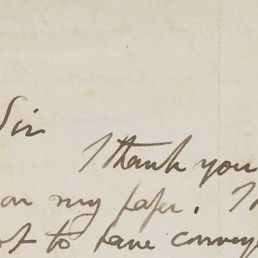 Sir
I thank you
on my paper. I
not to have convey